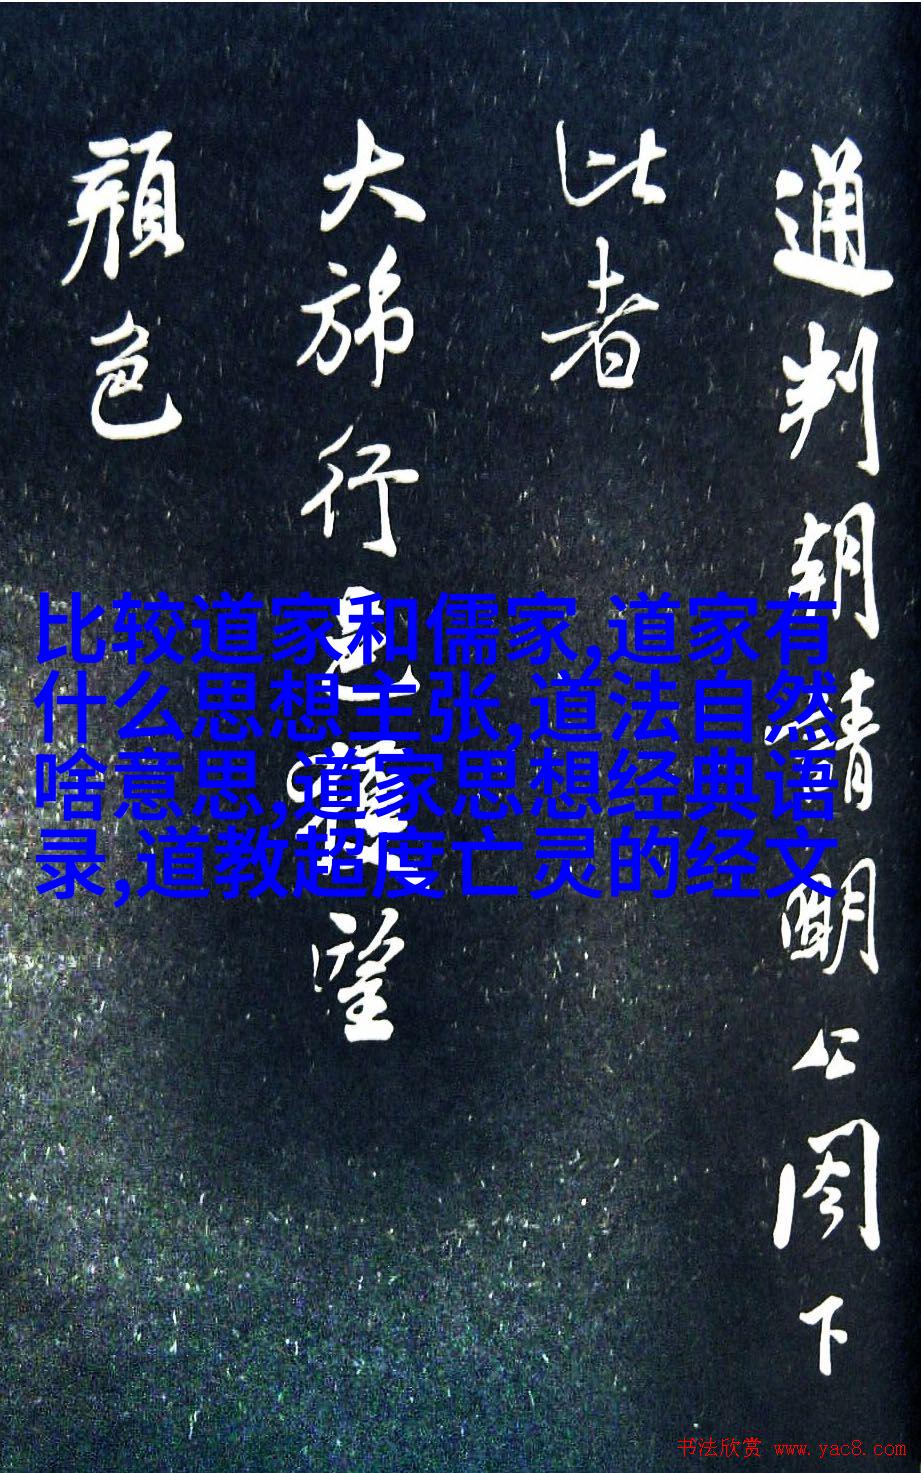 通判朝請公下
此者
大旆行望
顔色
比较道家和儒家,道家有
什么思想主张,道法自然
啥意思,道家思想经典语
录,道教超度亡灵的经文
书法欣赏 www.yac8.com